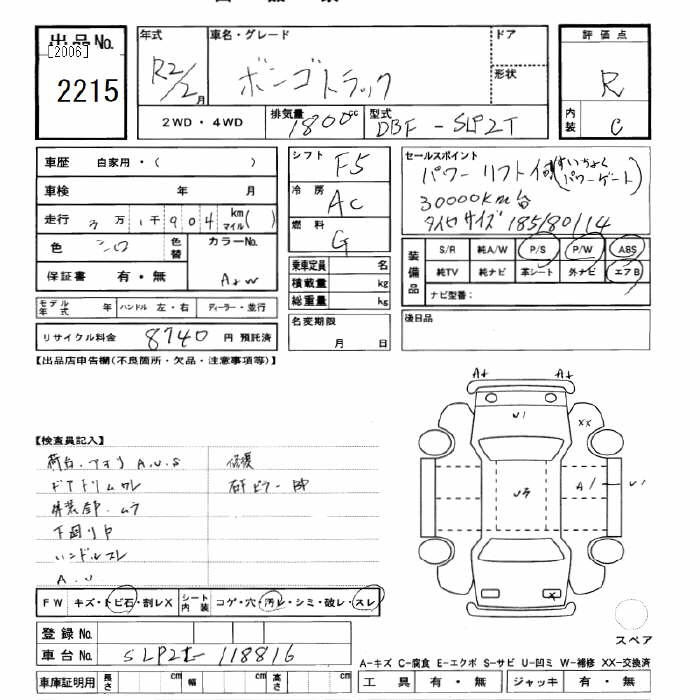 出品No.
[2006]
2215
年式
R2/2月
車名・グレード
ボンゴトラック
ドア
形状
2WD・4WD
排気量 1800cc
型式 DBF-SLP2T
評価点
R
内装 C
車歴 自家用・( )
車検 年 月
走行 3万1千904 km マイル( )
色 シロ 色替
カラーNo. A4W
保証書 有・無
モデル年式 年 ハンドル 左・右 ディーラー・並行
リサイクル料金 8740 円 預託済
シフト F5
冷房 AC
燃料 G
乗車定員 名
積載量 kg
総重量 kg
名変期限
月 日
セールスポイント
パワーリフト付(すいちょくパワーゲート)
30000km台
タイヤサイズ 185/80/14
装備品
S/R 純A/W P/S P/W ABS
純TV 純ナビ 革シート 外ナビ エアB
ナビ型番:
後日品
【出品店申告欄(不良箇所・欠品・注意事項等)】
【検査員記入】
荷台.アオリ A.U.S
ドアトリムワレ
下廻りサビ
ハンドルスレ
A.U
修復
A+ A+
U1
XX
U3
A1
U1
X
FW キズ・トビ石・割レX シート内装 コゲ・穴・汚レ・シミ・破レ・スレ
スペア
登録No.
車台No. SLP2T-118816
車庫証明用 長さ cm 幅 cm 高さ cm
A-キズ C-腐食 E-エクボ S-サビ U-凹ミ W-補修 XX-交換済
工具 有・無 ジャッキ 有・無